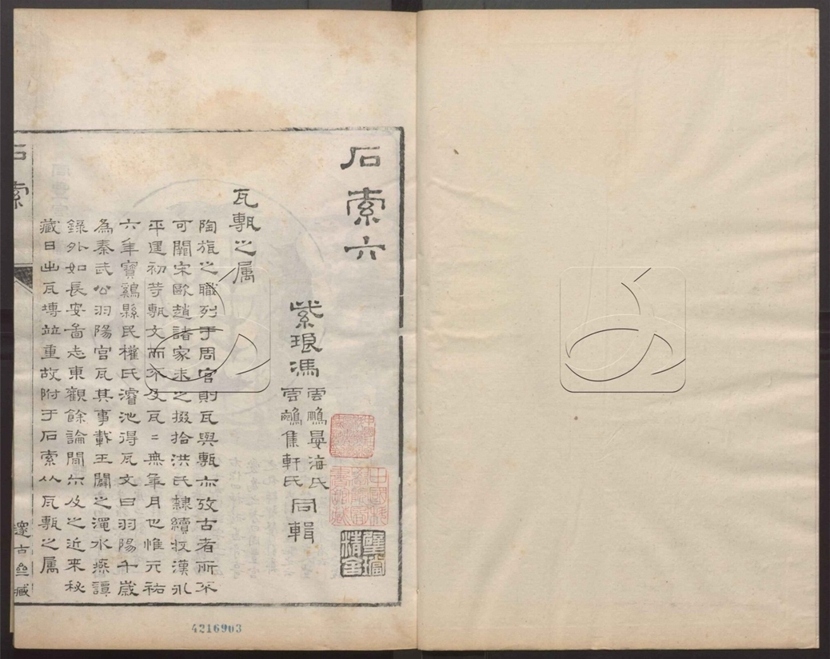 石索六
紫琅馮
雲鵬晏海氏
雲鵷集軒氏
同輯
瓦甎之屬
陶旊之職列于周官則瓦與甎亦攷古者所不
可闕宋歐趙諸家未之掇拾洪氏隸續收漢永
平建初等甎文而不及瓦瓦無年月也惟元祐
六年寶鷄縣民權氏濬池得瓦文曰羽陽千歲
為秦武公羽陽宮瓦其事載王闢之澠水燕譚
錄外如長安圖志東觀餘論間亦及之近來秘
藏日出瓦塼竝重故附于石索以瓦甎之屬
石索
邃古齋藏
4216903